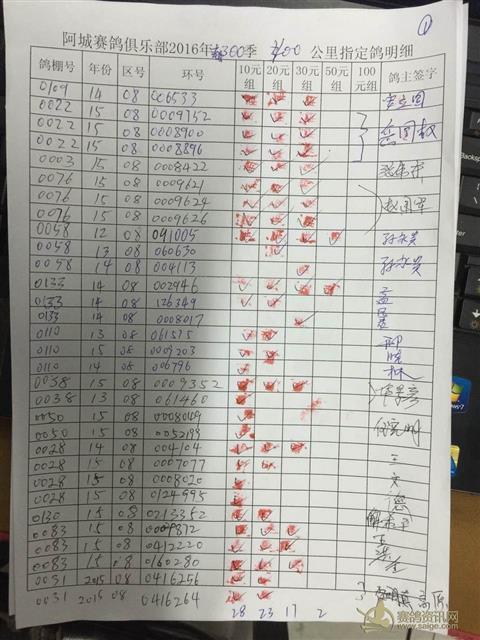 ①
阿城赛鸽俱乐部2016年春300季 300 公里指定鸽明细
鸽棚号 年份 区号 环号 10元组 20元组 30元组 50元组 100元组 鸽主签字
0109 14 08 006533
0022 15 08 0009752
0022 15 08 0008900
0022 15 08 0008896
0003 15 08 0008422
0076 15 08 0009621
0076 15 08 0009624
0076 15 08 0009626
0058 12 08 091005
0058 13 08 060630
0058 14 08 004113 孙永贵
0133 14 08 002946 孟
0133 14 08 126349
0133 14 08 0008017
0110 13 08 061535
0110 15 08 0009203
0110 14 08 006796 林
0038 15 08 0009352
0038 13 08 061460
0050 15 08 0008049
0050 15 08 0052198
0028 14 08 004104
0028 15 08 0007077 王
0028 15 08 0008020 文
0028 15 08 0124995 德
0130 15 08 0213352
0083 15 08 0009812
0083 15 08 0412220
0083 15 08 0160280
0031 2015 08 0416256
0031 2015 08 0416264
28 23 17 2
赛鸽资讯网
www.saige.com